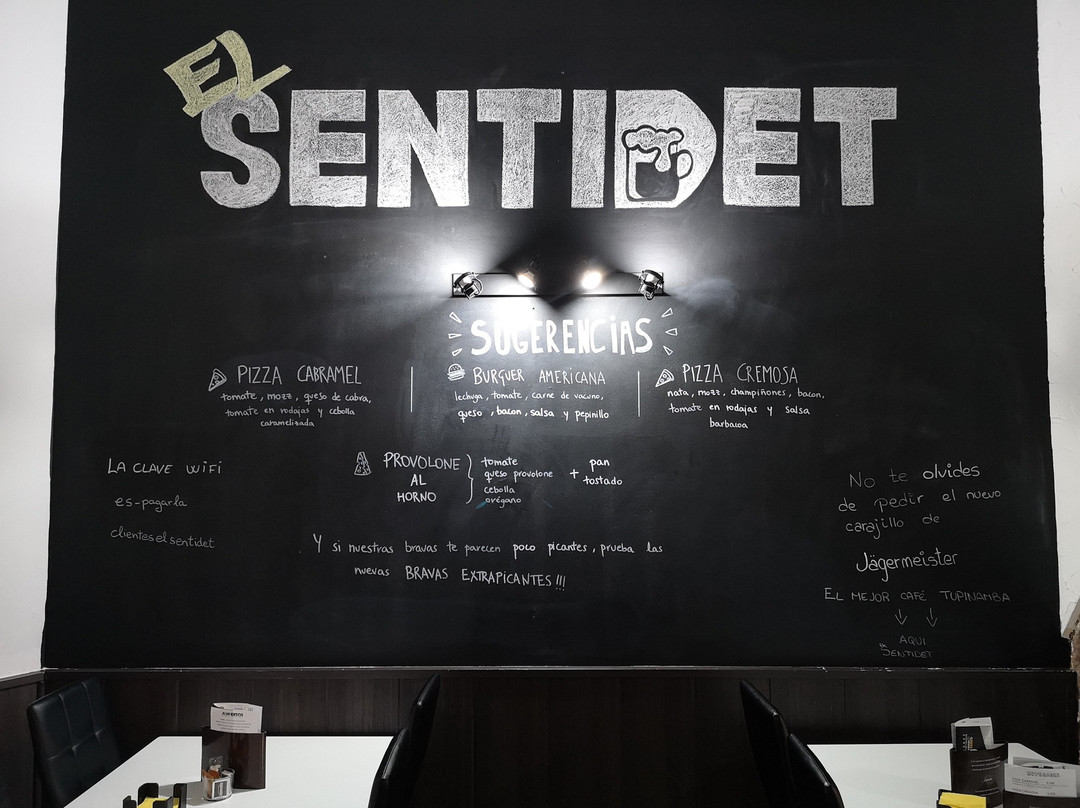 EL
SENTIDET
SUGERENCIAS
PIZZA CABRAMEL
tomate, mozz, queso de cabra,
tomate en rodajas y cebolla
caramelizada
BURGUER AMERICANA
lechuga, tomate, carne de vacuno,
queso, bacon, salsa y pepinillo
PIZZA CREMOSA
nata, mozz, champiñones, bacon,
tomate en rodajas y salsa
barbacoa
PROVOLONE
AL
HORNO
tomate
queso provolone
cebolla
orégano
+ pan
tostado
LA CLAVE WIFI
es-pagarla
clienteselsentidet
Y si nuestras bravas te parecen poco picantes, prueba las
nuevas BRAVAS EXTRAPICANTES!!!
No te olvides
de pedir el nuevo
carajillo de
Jägermeister
EL MEJOR CAFÉ TUPINAMBA
AQUI
SENTIDET